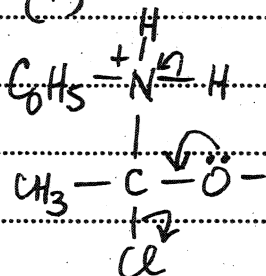 H
C6H5 — N+ — H
CH3 — C — Ö —
Cl